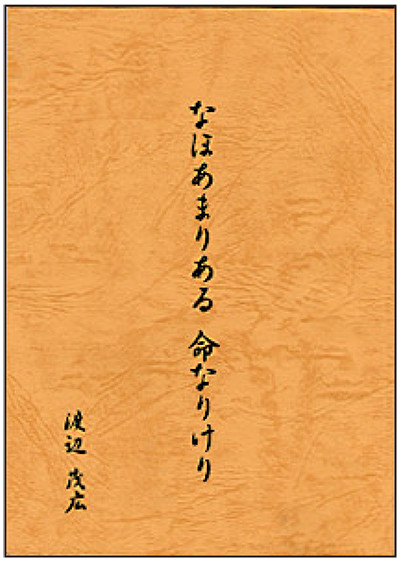 なほあまりある 命なりけり
渡辺 茂広